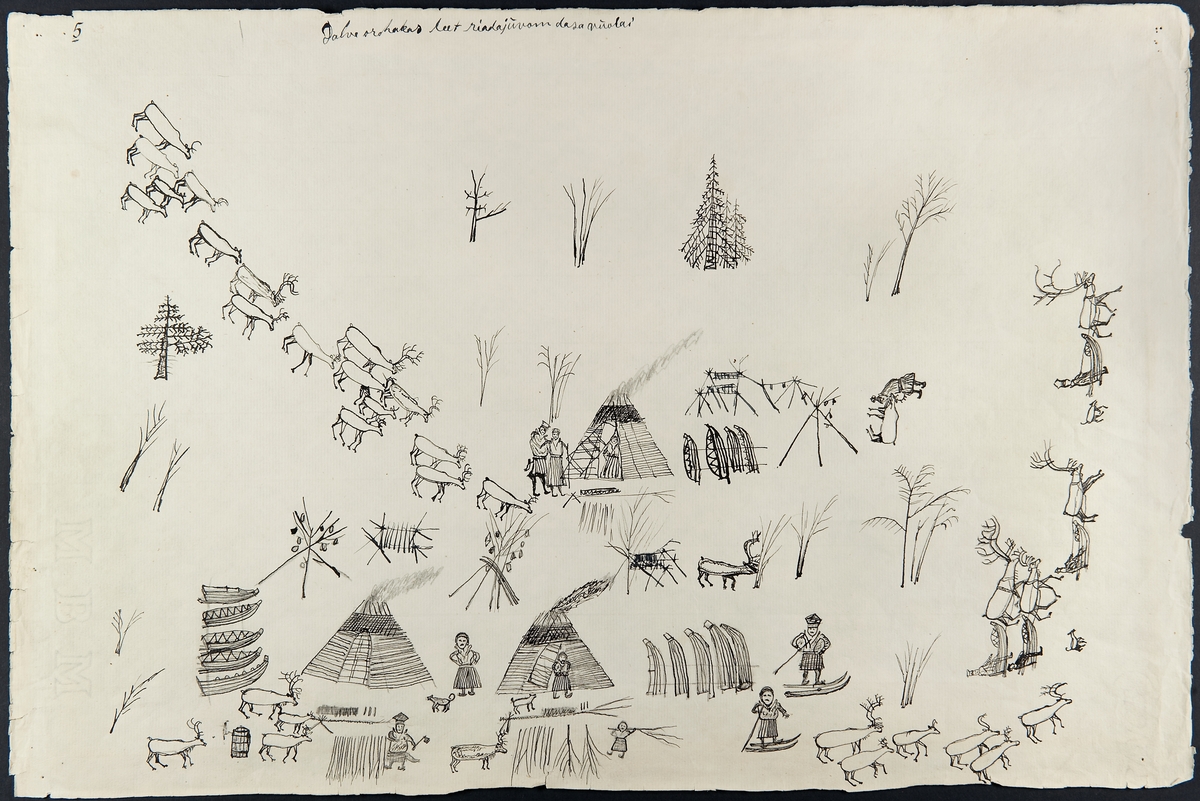 5
Dalve orohakas leet riadajŭvom dasa vŭolai